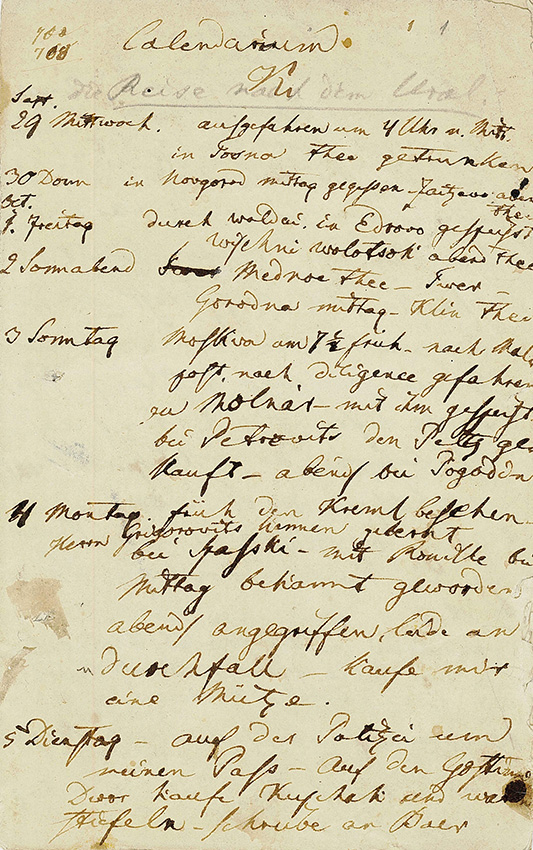 Calendarium
die Reise nach dem Ural.
Sept.
29 Mittwoch. ausgefahren um 4 Uhr n. Mitt.
in Tosna thee getrunken
30 Donn in Novgorod mittag gegessen Zaitzevo abend
thee
Oct.
1. Freitag durch waldai. in Edrovo gespeist
wischni wolotsok abend thee
2 Sonnabend Mednoe thee – Twer –
Gorodna mittag – Klin thee
3 Sonntag Moskwa um 7 1/2 früh – nach Mal
post. nach diligence gefahren
zu Molnár – mit ihm gespeist
bei Petrovits den Peltz ge
kauft – abends bei Pogodin
4 Montag früh den Kreml besehen –
Herrn Grigorovits kennen gelernt
bei Spasski – mit bei
Mittag bekannt geworden
abends angegriffen, leide an
durchfall – kaufe mir
eine Mütze.
5 Dienstag – auf der Polizei um
meinen Pass – Auf den Gostinno
Dwor kaufe Kuschak und
stiefeln – schreibe an Baer